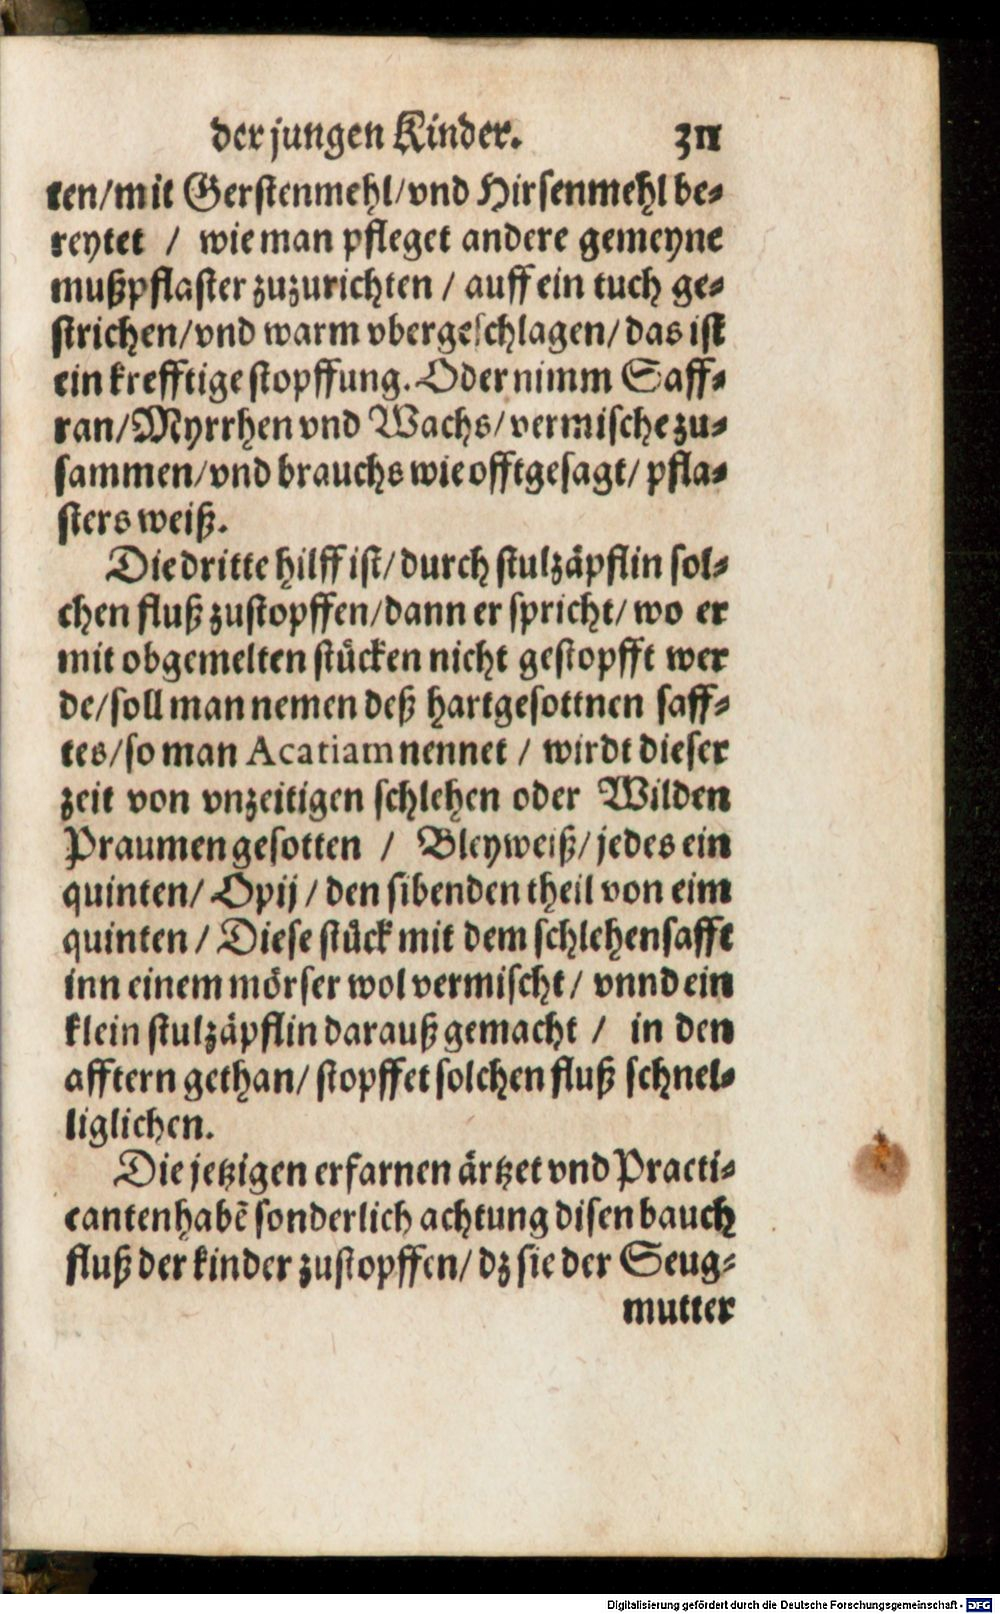 der jungen Kinder. 311
ten/mit Gerstenmehl/vnd Hirsenmehl be-
reytet / wie man pfleget andere gemeyne
mußpflaster zuzurichten / auff ein tuch ge-
strichen/vnd warm vbergeschlagen/das ist
ein krefftige stopffung. Oder nimm Saff-
ran/Myrrhen vnd Wachs/vermische zu-
sammen/vnd brauchs wie offtgesagt/pfla-
sters weiß.
Die dritte hilff ist/durch stulzäpflin sol-
chen fluß zustopffen/dann er spricht/wo er
mit obgemelten stücken nicht gestopfft wer
de/soll man nemen deß hartgesottnen saff-
tes/so man Acatiam nennet / wirdt dieser
zeit von vnzeitigen schlehen oder Wilden
Praumen gesotten / Bleyweiß/jedes ein
quinten/ Opij / den sibenden theil von eim
quinten / Diese stück mit dem schlehensafft
inn einem mörser wol vermischt/ vnnd ein
klein stulzäpflin darauß gemacht / in den
afftern gethan/ stopffet solchen fluß schnel-
liglichen.
Die jetzigen erfarnen ärtzet vnd Practi-
canten habē sonderlich achtung disen bauch
fluß der kinder zustopffen/dz sie der Seug-
mutter
Digitalisierung gefördert durch die Deutsche Forschungsgemeinschaft - DFG